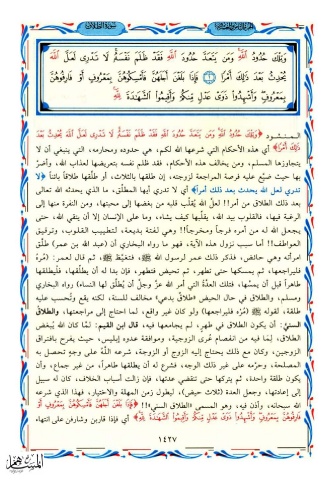 سورة الطلاق
وَتِلْكَ حُدُودُ اللَّهِ وَمَن يَتَعَدَّ حُدُودَ اللَّهِ فَقَدْ ظَلَمَ نَفْسَهُ لَا تَدْرِى لَعَلَّ اللَّهَ
يُحْدِثُ بَعْدَ ذَٰلِكَ أَمْرًا ١ فَإِذَا بَلَغْنَ أَجَلَهُنَّ فَأَمْسِكُوهُنَّ بِمَعْرُوفٍ أَوْ فَارِقُوهُنَّ
بِمَعْرُوفٍ وَأَشْهِدُوا ذَوَىْ عَدْلٍ مِّنكُمْ وَأَقِيمُوا الشَّهَٰدَةَ لِلَّهِ
﴿وَتِلْكَ حُدُودُ اللَّهِ وَمَن يَتَعَدَّ حُدُودَ اللَّهِ فَقَدْ ظَلَمَ نَفْسَهُ لَا تَدْرِى لَعَلَّ اللَّهَ يُحْدِثُ بَعْدَ
ذَٰلِكَ أَمْرًا﴾ أي هذه الأحكام التي شرعها الله لكم، هي حدوده ومحارمه، التي ينبغي أن لا
يتجاوزها المسلم، ومن يخالف هذه الأحكام، فقد ظلم نفسه بتعريضها لعذاب الله، وأضرَّ
بها حيث ضيَّع عليه فرصة المراجعة لزوجته، إن طلقها بالثلاث، أو طلَّقها طلاقاً بائناً ﴿لا
تدري لعل الله يحدث بعد ذلك أمراً﴾ أي لا تدري أيها المطلِّق، ما الذي يُحدثه الله تعالى
بعد ذلك الطلاق من أمر!! لعلَّ الله يُقلِّب قلبه من بغضها إلى محبتها، ومن النفرة منها إلى
الرغبة فيها، فالقلوب بيد الله، يقلِّبها كيف يشاء، وما على الإنسان إلا أن يتقي الله، حتى
يجعل الله له من أمره فرجاً ومخرجاً!! وهي لفتة بديعة، لتطييب القلوب، وترقيق
العواطف!! أما سبب نزول هذه الآية، فهو ما رواه البخاري أن (عبد الله بن عمر) طلَّق
امرأته وهي حائض، فذكر ذلك عمر لرسول الله ﷺ، فتغيَّظ ﷺ، ثم قال لعمر: (مُرْهُ
فليراجعها، ثم يمسكها حتى تطهر، ثم تحيض فتطهر، فإن بدا له أن يطلِّقها، فليطلقها
طاهراً قبل أن يمسَّها، فتلك العدَّة التي أمر الله عزَّ وجلَّ أن يُطلَّق لها النساء) رواه البخاري
ومسلم، والطلاق في حال الحيض (طلاق بدعي) مخالف للسنة، لكنه يقع وتُحسب عليه
طلقة، لقوله ﷺ (مُرْه فليراجعها) ولو كان غير واقع، لما احتاج إلى مراجعتها، والطلاق
السنيّ: أن يكون الطلاق في طهر، لم يجامعها فيه، قال ابن القيم: لمَّا كان الله يُبغض
الطلاق، لِمَا فيه من انفصام عُرى الزوجية، وموافقة عدوه إبليس، حيث يفرح بافتراق
الزوجين، وكان مع ذلك يحتاج إليه الزوج أو الزوجة، شرعه اللَّهُ على وجهٍ تحصل به
المصلحة، وحرَّمه على غير ذلك الوجه، فشرع له أن يطلقها طاهراً، من غير جماع، وأن
يكون طلقة واحدة، ثم يتركها حتى تنقضي عدتها، فإن زالت أسباب الخلاف، كان له سبيل
إلى إعادتها، وجعل العدة (ثلاث حيض)، ليطول زمن المهلة والاختيار، فهذا الذي شرعه
الله سبحانه، وأذن فيه، وهو المسمى «الطلاق السني»!! ﴿فَإِذَا بَلَغْنَ أَجَلَهُنَّ فَأَمْسِكُوهُنَّ بِمَعْرُوفٍ أَوْ
فَارِقُوهُنَّ بِمَعْرُوفٍ وَأَشْهِدُوا ذَوَىْ عَدْلٍ مِّنكُمْ وَأَقِيمُوا الشَّهَٰدَةَ لِلَّهِ﴾ أي فإذا قاربن وشارفن على انتهاء
١٤٢٧